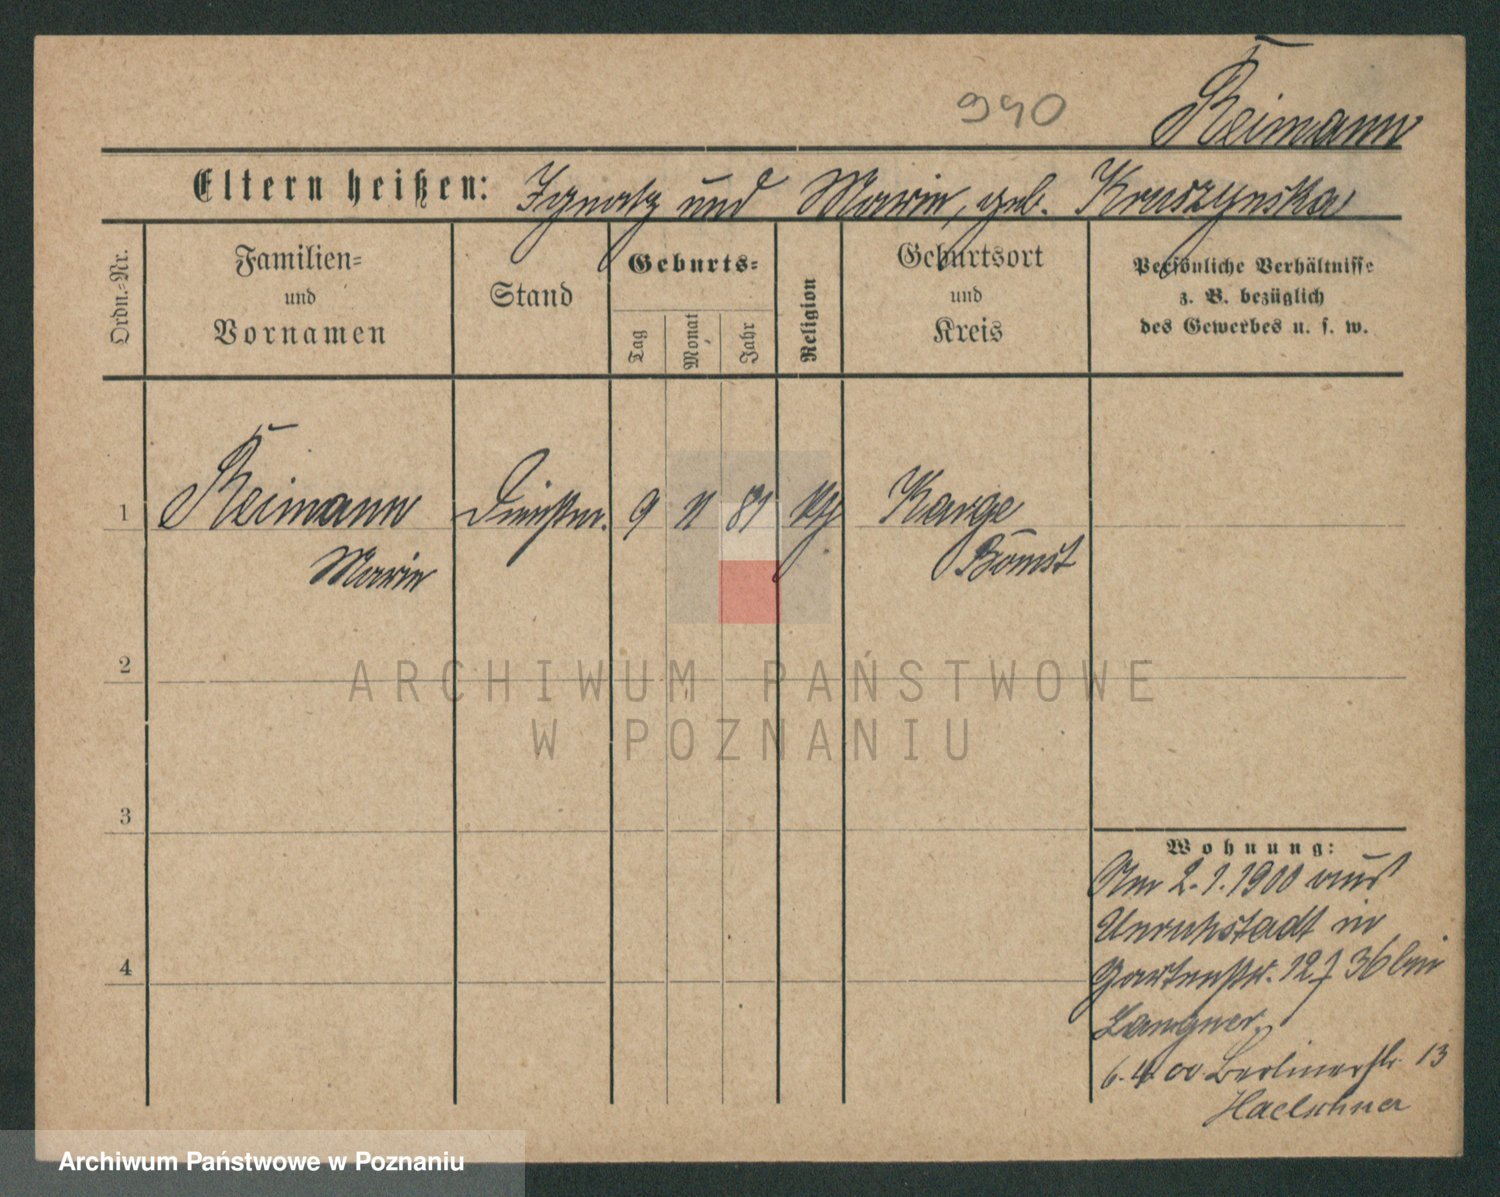 940
Reimann
Eltern heißen: Ignatz und Marie, geb. Kruszynska
Ordn.-Nr.
Familien-
und
Vornamen
Stand
Geburts-
Tag
Monat
Jahr
Religion
Geburtsort
und
Kreis
Persönliche Verhältnisse
z. B. bezüglich
des Gewerbes u. s. w.
1
Reimann
Marie
Dienstm.
9 11 81
Karge
Bomst
2
ARCHIWUM PAŃSTWOWE
W POZNANIU
3
4
Wohnung:
Am 2.1.1900 aus
Unruhstadt in
Gartenstr. 12 36 bei
Langner.
6.4.00 Berlinerstr. 13
Haelschner
Archiwum Państwowe w Poznaniu